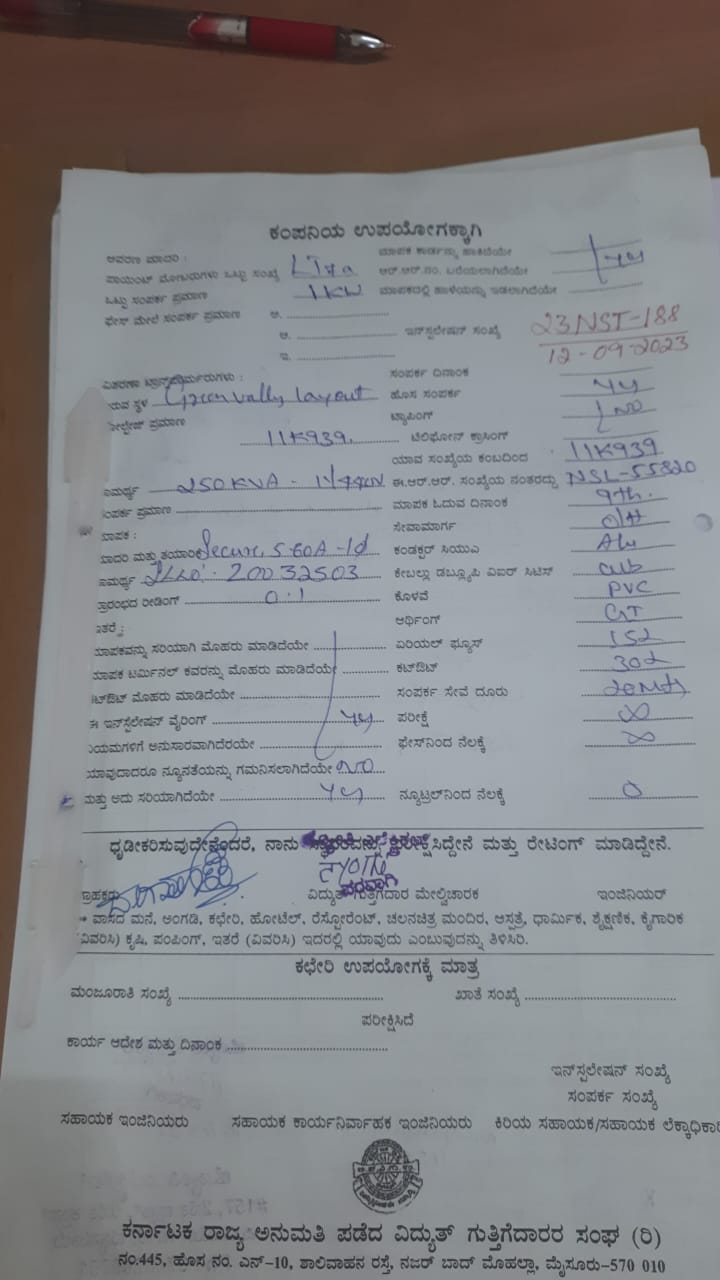 ಕಂಪನಿಯ ಉಪಯೋಗಕ್ಕಾಗಿ
ಆವರಣ ಮಾದರಿ : ಮಾಪಕ ಕಾರ್ಡನ್ನು ಹಾಕಿದೆಯೇ
ಪಾಯಿಂಟ್ ಮೋಟಾರುಗಳು ಒಟ್ಟು ಸಂಖ್ಯೆ ಆರ್.ಆರ್.ನಂ. ಬರೆಯಲಾಗಿದೆಯೇ
ಒಟ್ಟು ಸಂಪರ್ಕ ಪ್ರಮಾಣ 1KW ಮಾಪಕದಲ್ಲಿ ಹಾಳೆಯನ್ನು ಇಡಲಾಗಿದೆಯೇ
ಫೇಸ್ ಮೇಲೆ ಸಂಪರ್ಕ ಪ್ರಮಾಣ ಅ.
ಆ. ಇನ್‌ಸ್ಟಲೇಷನ್ ಸಂಖ್ಯೆ 23NST-188
ಇ. 12-09-2023
ವಿತರಣಾ ಟ್ರಾನ್ಸ್‌ಫಾರ್ಮರುಗಳು : ಸಂಪರ್ಕ ದಿನಾಂಕ
ರುವ ಸ್ಥಳ Green vally layout ಹೊಸ ಸಂಪರ್ಕ
ವೋಲ್ಟೇಜ್ ಪ್ರಮಾಣ ಟ್ಯಾಪಿಂಗ್ NO
11K939 ಟೆಲಿಫೋನ್ ಕ್ರಾಸಿಂಗ್
ಯಾವ ಸಂಖ್ಯೆಯ ಕಂಬದಿಂದ 11K939
ಸಾಮರ್ಥ್ಯ 250KVA ಈ.ಆರ್.ಆರ್. ಸಂಖ್ಯೆಯ ನಂತರದ್ದು NSL-55820
ಸಂಪರ್ಕ ಪ್ರಮಾಣ ಮಾಪಕ ಓದುವ ದಿನಾಂಕ 9th.
ಮಾಪಕ : ಸೇವಾಮಾರ್ಗ O/H
ಮಾದರಿ ಮತ್ತು ತಯಾರಿಕೆ Secure, 5-60A-1ɸ ಕಂಡಕ್ಟರ್ ಸಿಯುಎ Alu
ಸಾಮರ್ಥ್ಯ 20032503 ಕೇಬಲ್ಲು ಡಬ್ಲ್ಯೂಪಿ ವಿಐರ್ ಸಿಟಿಸ್
ಪ್ರಾರಂಭದ ರೀಡಿಂಗ್ 0.1 ಕೊಳವೆ PVC
ಇತರೆ : ಆರ್ಥಿಂಗ್ GI
ಮಾಪಕವನ್ನು ಸರಿಯಾಗಿ ಮೊಹರು ಮಾಡಿದೆಯೇ ಏರಿಯಲ್ ಫ್ಯೂಸ್
ಮಾಪಕ ಟರ್ಮಿನಲ್ ಕವರನ್ನು ಮೊಹರು ಮಾಡಿದೆಯೇ ಕಟ್‌ಔಟ್
ಕಟ್‌ಔಟ್ ಮೊಹರು ಮಾಡಿದೆಯೇ ಸಂಪರ್ಕ ಸೇವೆ ದೂರು
ಈ ಇನ್‌ಸ್ಟಲೇಷನ್ ವೈರಿಂಗ್ ಪರೀಕ್ಷೆ ∞
ನಿಯಮಗಳಿಗೆ ಅನುಸಾರವಾಗಿದೆರಯೇ ಫೇಸ್‌ನಿಂದ ನೆಲಕ್ಕೆ ∞
ಯಾವುದಾದರೂ ನ್ಯೂನತೆಯನ್ನು ಗಮನಿಸಲಾಗಿದೆಯೇ NO
ಮತ್ತು ಅದು ಸರಿಯಾಗಿದೆಯೇ ನ್ಯೂಟ್ರಲ್‌ನಿಂದ ನೆಲಕ್ಕೆ 0
ಧೃಡೀಕರಿಸುವುದೇನೆಂದರೆ, ನಾನು ಪರೀಕ್ಷಿಸಿದ್ದೇನೆ ಮತ್ತು ರೇಟಿಂಗ್ ಮಾಡಿದ್ದೇನೆ.
ಪರವಾಗಿ
ಗ್ರಾಹಕರು ವಿದ್ಯುತ್ ಗುತ್ತಿಗೆದಾರ ಮೇಲ್ವಿಚಾರಕ ಇಂಜಿನಿಯರ್
* ವಾಸದ ಮನೆ, ಅಂಗಡಿ, ಕಛೇರಿ, ಹೋಟೆಲ್, ರೆಸ್ಟೋರೆಂಟ್, ಚಲನಚಿತ್ರ ಮಂದಿರ, ಆಸ್ಪತ್ರೆ, ಧಾರ್ಮಿಕ, ಶೈಕ್ಷಣಿಕ, ಕೈಗಾರಿಕ
(ವಿವರಿಸಿ) ಕೃಷಿ, ಪಂಪಿಂಗ್, ಇತರೆ (ವಿವರಿಸಿ) ಇದರಲ್ಲಿ ಯಾವುದು ಎಂಬುವುದನ್ನು ತಿಳಿಸಿರಿ.
ಕಛೇರಿ ಉಪಯೋಗಕ್ಕೆ ಮಾತ್ರ
ಮಂಜೂರಾತಿ ಸಂಖ್ಯೆ ಖಾತೆ ಸಂಖ್ಯೆ
ಪರೀಕ್ಷಿಸಿದೆ
ಕಾರ್ಯ ಆದೇಶ ಮತ್ತು ದಿನಾಂಕ
ಇನ್‌ಸ್ಟಲೇಷನ್ ಸಂಖ್ಯೆ
ಸಂಪರ್ಕ ಸಂಖ್ಯೆ
ಸಹಾಯಕ ಇಂಜಿನಿಯರು ಸಹಾಯಕ ಕಾರ್ಯನಿರ್ವಾಹಕ ಇಂಜಿನಿಯರು ಕಿರಿಯ ಸಹಾಯಕ/ಸಹಾಯಕ ಲೆಕ್ಕಾಧಿಕಾರಿ
ಕರ್ನಾಟಕ ರಾಜ್ಯ ಅನುಮತಿ ಪಡೆದ ವಿದ್ಯುತ್ ಗುತ್ತಿಗೆದಾರರ ಸಂಘ (ರಿ)
ನಂ.445, ಹೊಸ ನಂ. ಎನ್-10, ಶಾಲಿವಾಹನ ರಸ್ತೆ, ನಜರ್ ಬಾದ್ ಮೊಹಲ್ಲಾ, ಮೈಸೂರು-570 010